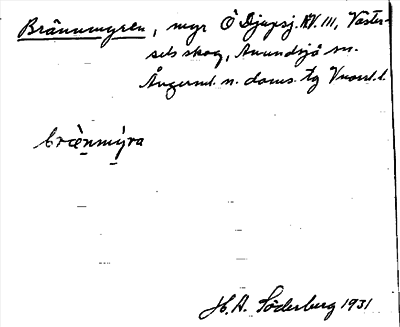 Brännmyren, myr Ö Djupsj. AV. III, Väster-
sels skog, Anundsjö sn.
Ångerml. n. doms. tg
brænmýra
H. A. Söderberg 1931